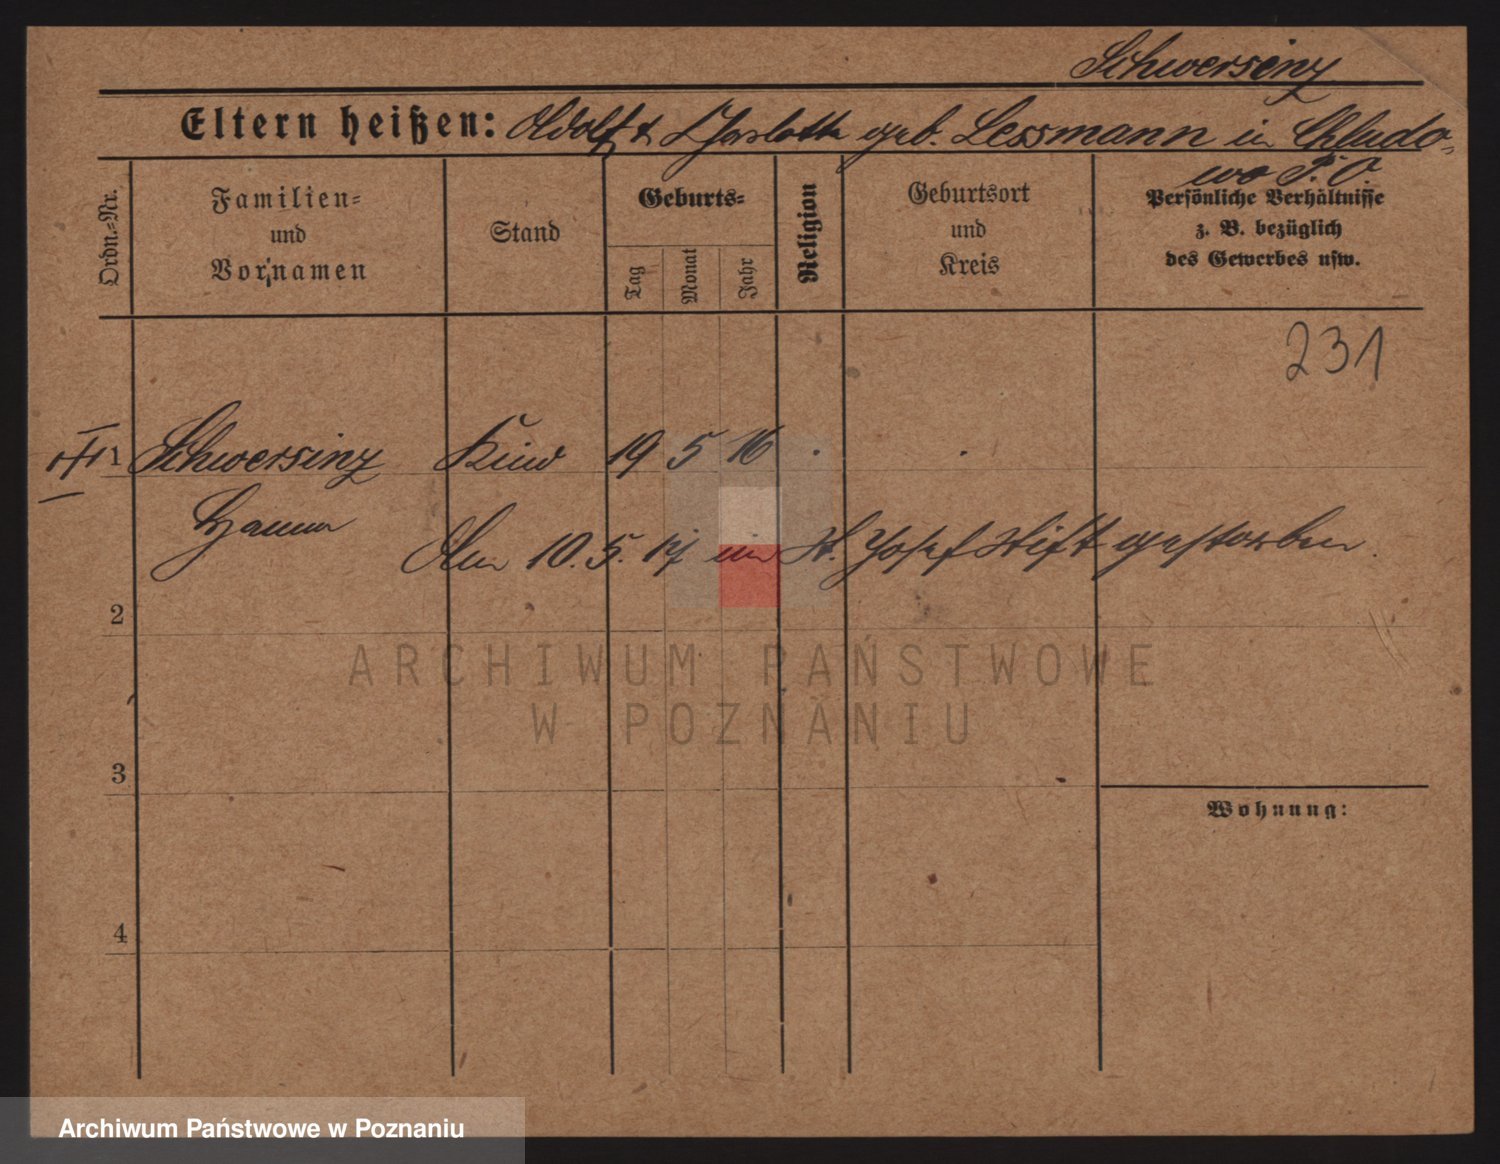 Schwersenz
Eltern heißen: Adolf & Charlotte geb. Lessmann in Chludo-
wo P. O.
Ordn.-Nr.
Familien-
und
Vornamen
Stand
Geburts-
Tag
Monat
Jahr
Religion
Geburtsort
und
Kreis
Persönliche Verhältnisse
z. B. bezüglich
des Gewerbes usw.
231
1 Schwersenz Kind 19 5 16
Hanna
Am 10. 5. 17 im St. Josef Stift gestorben.
2
ARCHIWUM PAŃSTWOWE
W POZNANIU
3
Wohnung:
4
Archiwum Państwowe w Poznaniu